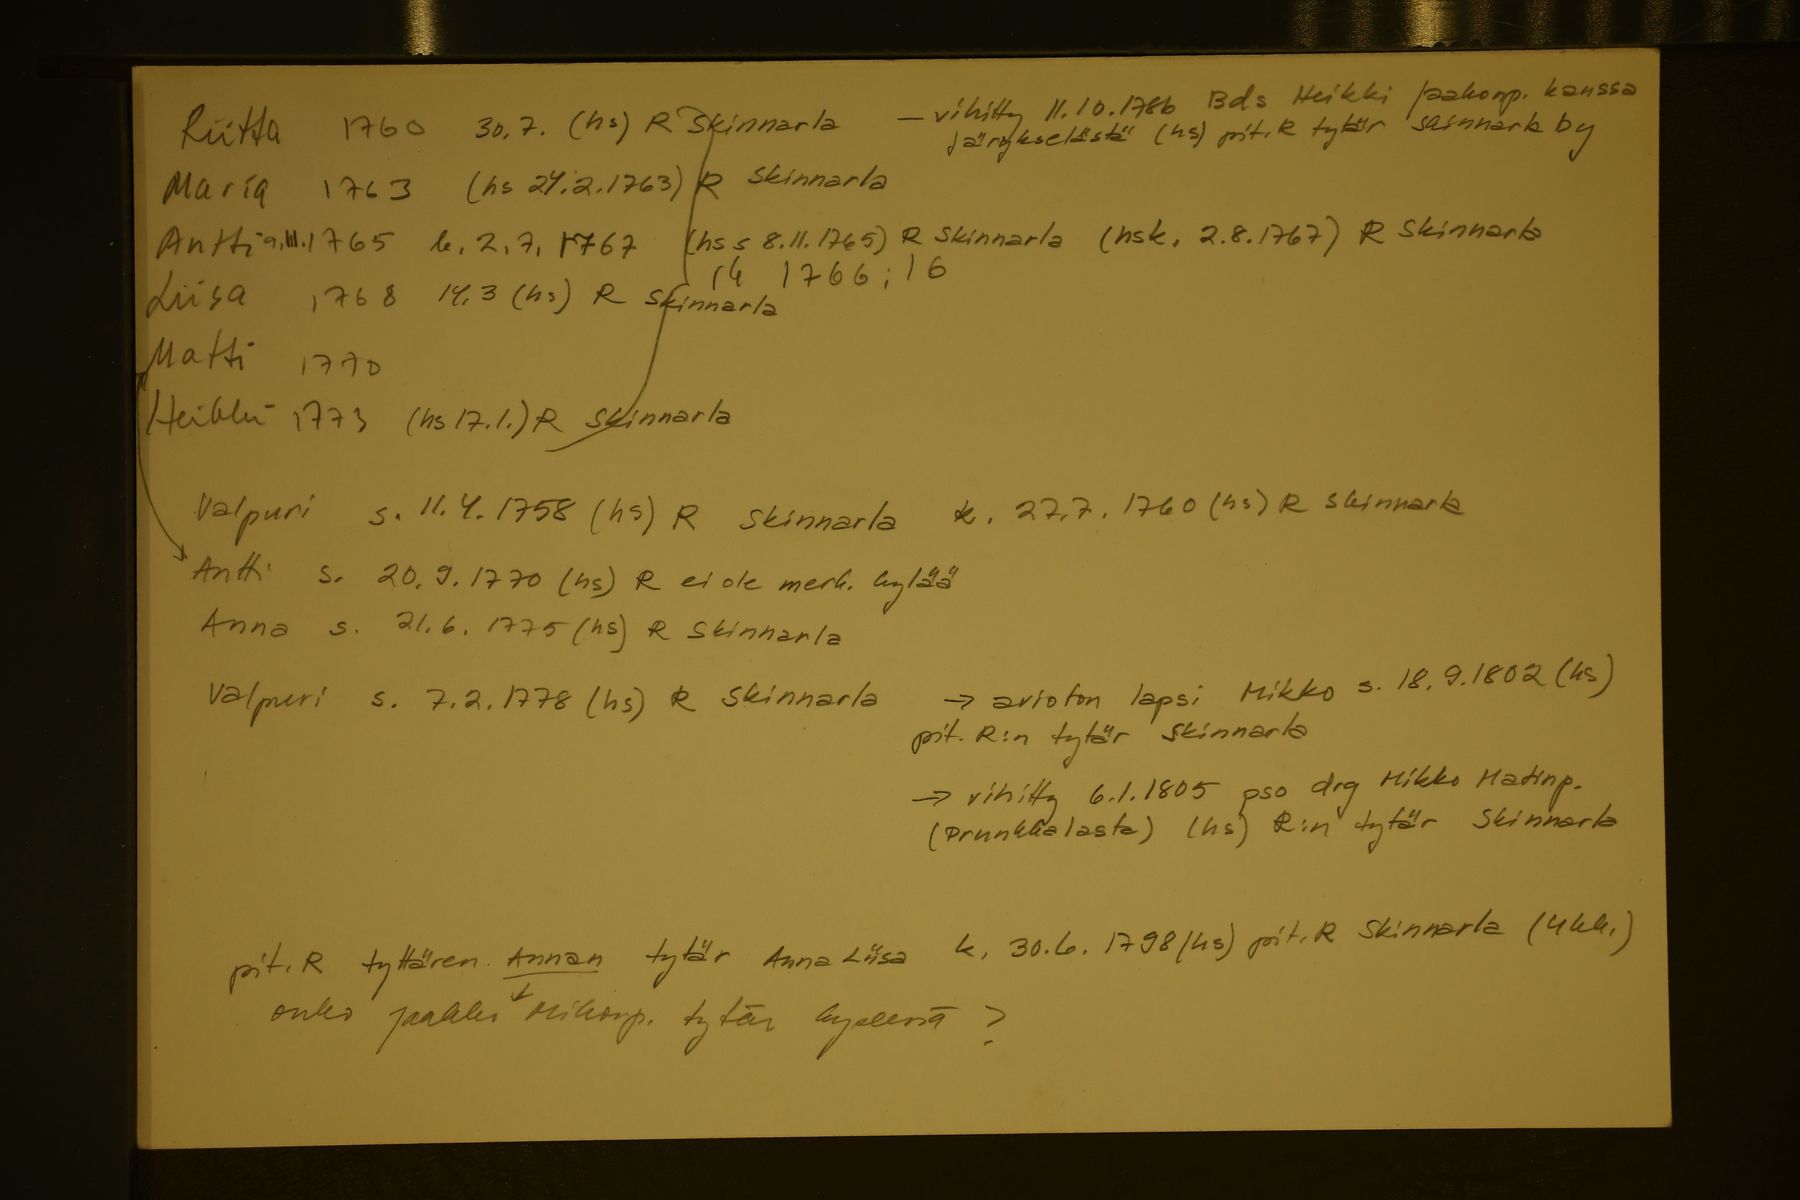 Riitta 1760 30.7. (hs) R Skinnarla — vihitty 11.10.1786 Bds Heikki Jaakonp. kanssa
Järykselästä (hs) pit. R tytär Skinnarla by
Maria 1763 (hs 24.2.1763) R Skinnarla
Antti 9.III.1765 k. 2.7. 1767 (hs s 8.11.1765) R Skinnarla (hsk. 2.8.1767) R Skinnarla
rk 1766; 16
Liisa 1768 14.3 (hs) R Skinnarla
Matti 1770
Heikki 1773 (hs 17.1.) R Skinnarla
Valpuri s. 11.4.1758 (hs) R Skinnarla k. 27.7.1760 (hs) R Skinnarla
Antti s. 20.9.1770 (hs) R ei ole merk. kylää
Anna s. 21.6.1775 (hs) R Skinnarla
Valpuri s. 7.2.1778 (hs) R Skinnarla → avioton lapsi Mikko s. 18.9.1802 (hs)
pit. R:n tytär Skinnarla
→ vihitty 6.1.1805 pso drg Mikko Matinp.
(Prunkkalasta) (hs) R:n tytär Skinnarla
pit. R tyttären Annan tytär Anna Liisa k. 30.6.1798 (hs) pit. R Skinnarla (4kk.)
onko Jaakko Mikonp. tytär kyseessä ?